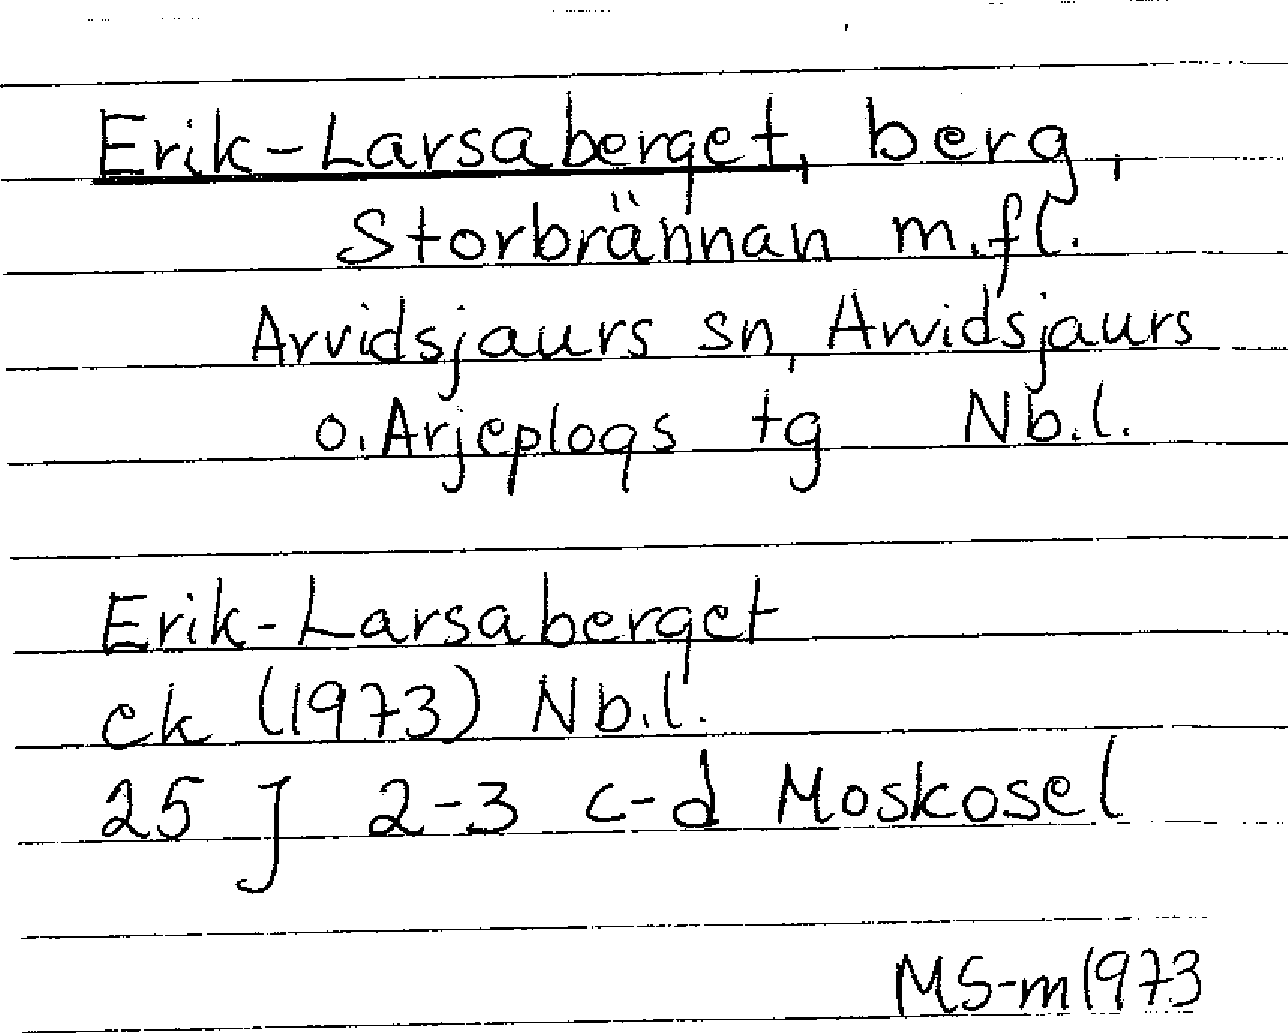 Erik-Larsaberget, berg,
Storbrännan m.fl.
Arvidsjaurs sn, Arvidsjaurs
o. Arjeplogs tg Nb.l.
Erik-Larsaberget
ek (1973) Nb.l.
25 J 2-3 c-d Moskosel
MS-m 1973